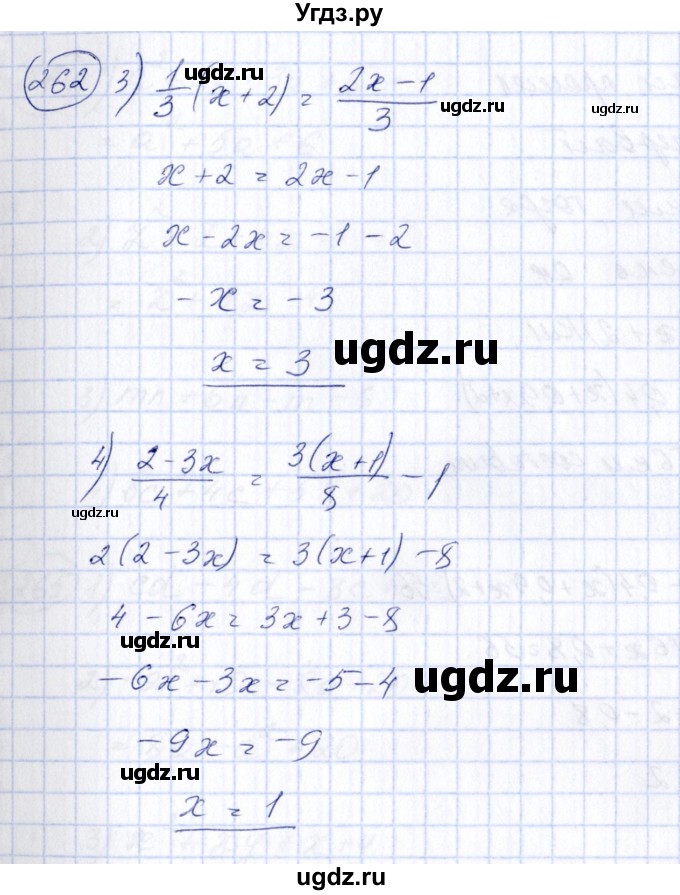 Угдз.ру
262 3) 1/3 (x + 2) = (2x - 1)/3
ugdz.ru ugdz.ru ugdz.ru
x + 2 = 2x - 1
x - 2x = -1 - 2
- x = - 3
x = 3 ugdz.ru
4) (2 - 3x)/4 = 3(x + 1)/8 - 1
ugdz.ru
2(2 - 3x) = 3(x + 1) - 8
4 - 6x = 3x + 3 - 8
ugdz.ru
-6x - 3x = -5 - 4 ugdz.ru
-9x = -9
ugdz.ru
x = 1
ugdz.ru